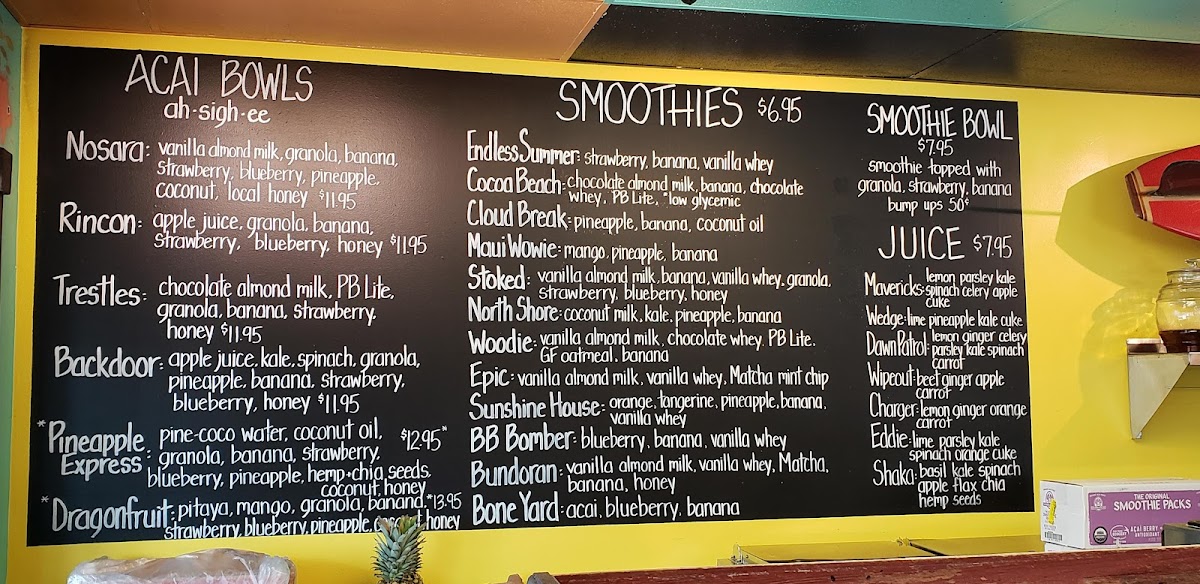 ACAI BOWLS
ah-sigh-ee
Nosara: vanilla almond milk, granola, banana,
strawberry, blueberry, pineapple,
coconut, local honey $11.95
Rincon: apple juice, granola, banana,
strawberry, blueberry, honey $11.95
Trestles: chocolate almond milk, PB Lite,
granola, banana, strawberry,
honey $11.95
Backdoor: apple juice, kale, spinach, granola,
pineapple, banana, strawberry,
blueberry, honey $11.95
*Pineapple Express: pine-coco water, coconut oil, $12.95*
granola, banana, strawberry,
blueberry, pineapple, hemp+chia seeds,
coconut, honey
*Dragonfruit: pitaya, mango, granola, banana, *13.95
strawberry, blueberry, pineapple, honey
SMOOTHIES $6.95
Endless Summer: strawberry, banana, vanilla whey
Cocoa Beach: chocolate almond milk, banana, chocolate
whey, PB Lite, *low glycemic
Cloud Break: pineapple, banana, coconut oil
Maui Wowie: mango, pineapple, banana
Stoked: vanilla almond milk, banana, vanilla whey, granola,
strawberry, blueberry, honey
North Shore: coconut milk, kale, pineapple, banana
Woodie: vanilla almond milk, chocolate whey, PB Lite,
GF oatmeal, banana
Epic: vanilla almond milk, vanilla whey, Matcha mint chip
Sunshine House: orange, tangerine, pineapple, banana,
vanilla whey
BB Bomber: blueberry, banana, vanilla whey
Bundoran: vanilla almond milk, vanilla whey, Matcha,
banana, honey
Bone Yard: acai, blueberry, banana
SMOOTHIE BOWL
$7.95
smoothie topped with
granola, strawberry, banana
bump ups 50¢
JUICE $7.95
Mavericks: lemon parsley kale
spinach celery apple
cuke
Wedge: lime pineapple kale cuke
Dawn Patrol: lemon ginger celery
parsley kale spinach
carrot
Wipeout: beet ginger apple
carrot
Charger: lemon ginger orange
carrot
Eddie: lime parsley kale
spinach orange cuke
Shaka: basil kale spinach
apple flax chia
hemp seeds
THE ORIGINAL
SMOOTHIE PACKS
ACAI BERRY
ANTIOXIDANT